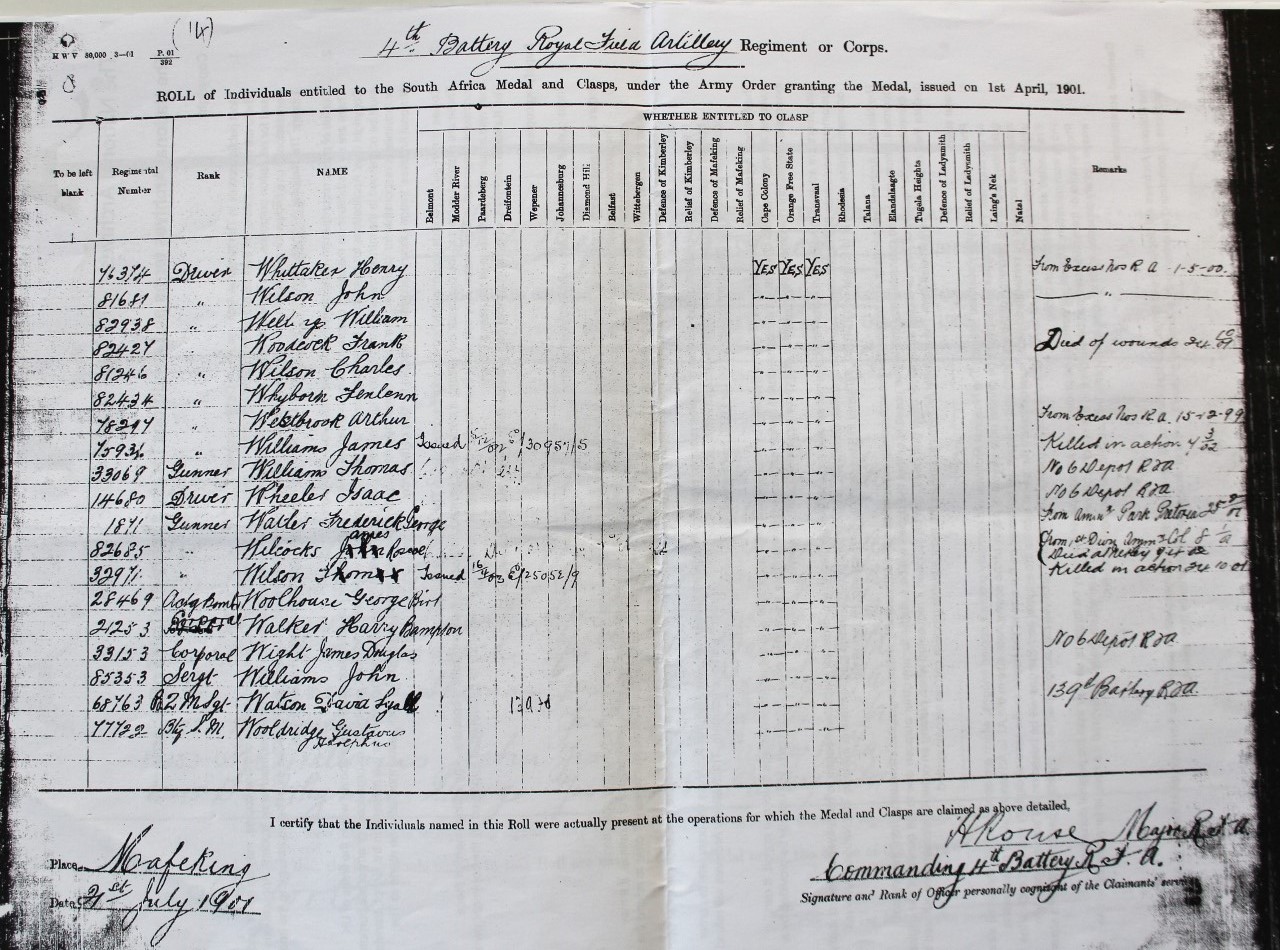 (14)
H W V 80,000 3—01 P. 01 392
4th Battery Royal Field Artillery Regiment or Corps.
ROLL of Individuals entitled to the South Africa Medal and Clasps, under the Army Order granting the Medal, issued on 1st April, 1901.
WHETHER ENTITLED TO CLASP
To be left blank Regimental Number Rank NAME Belmont Modder River Paardeberg Dreifontein Wepener Johannesburg Diamond Hill Belfast Wittebergen Defence of Kimberley Relief of Kimberley Defence of Mafeking Relief of Mafeking Cape Colony Orange Free State Transvaal Rhodesia Talana Elandslaagte Tugela Heights Defence of Ladysmith Relief of Ladysmith Laing's Nek Natal Remarks
76374 Driver Whittaker Henry YES YES YES From Excess Nos R A 1-5-00.
81681 " Wilson John " " " "
82938 " William " " "
82427 " Woodcock Frank " " " Died of wounds
81246 " Wilson Charles " " "
82434 " Whyborn " " "
78297 Westbrook Arthur " " " From Excess Nos R.A. 15-12-99
" Williams James Issued " " " Killed in action 4/3/02
33069 Gunner Williams Thomas " " " No 6 Depot RFA
14680 Driver Wheeler Isaac " " " No 6 Depot RFA
1871 Gunner Waller Frederick George " " " From Ammn Park
82685 " Wilcocks James " " "
32971 " Wilson Issued " " " Killed in action
28469 Actg Bomb Woolhouse George " " "
21253 Walker Harry Bampton " " "
33153 Corporal Wight James Douglas " " " No 6 Depot RFA
85353 Sergt Williams John " " "
68763 Watson David " " " 139th Battery RFA
77722 Bty S.M. Wooldridge Gustavus Adolphus " " "
I certify that the Individuals named in this Roll were actually present at the operations for which the Medal and Clasps are claimed as above detailed,
Major R.F.A.
Place Mafeking
Commanding 4th Battery R.F.A.
Signature and Rank of Officer personally cognisant of the Claimants'
Date July 1901